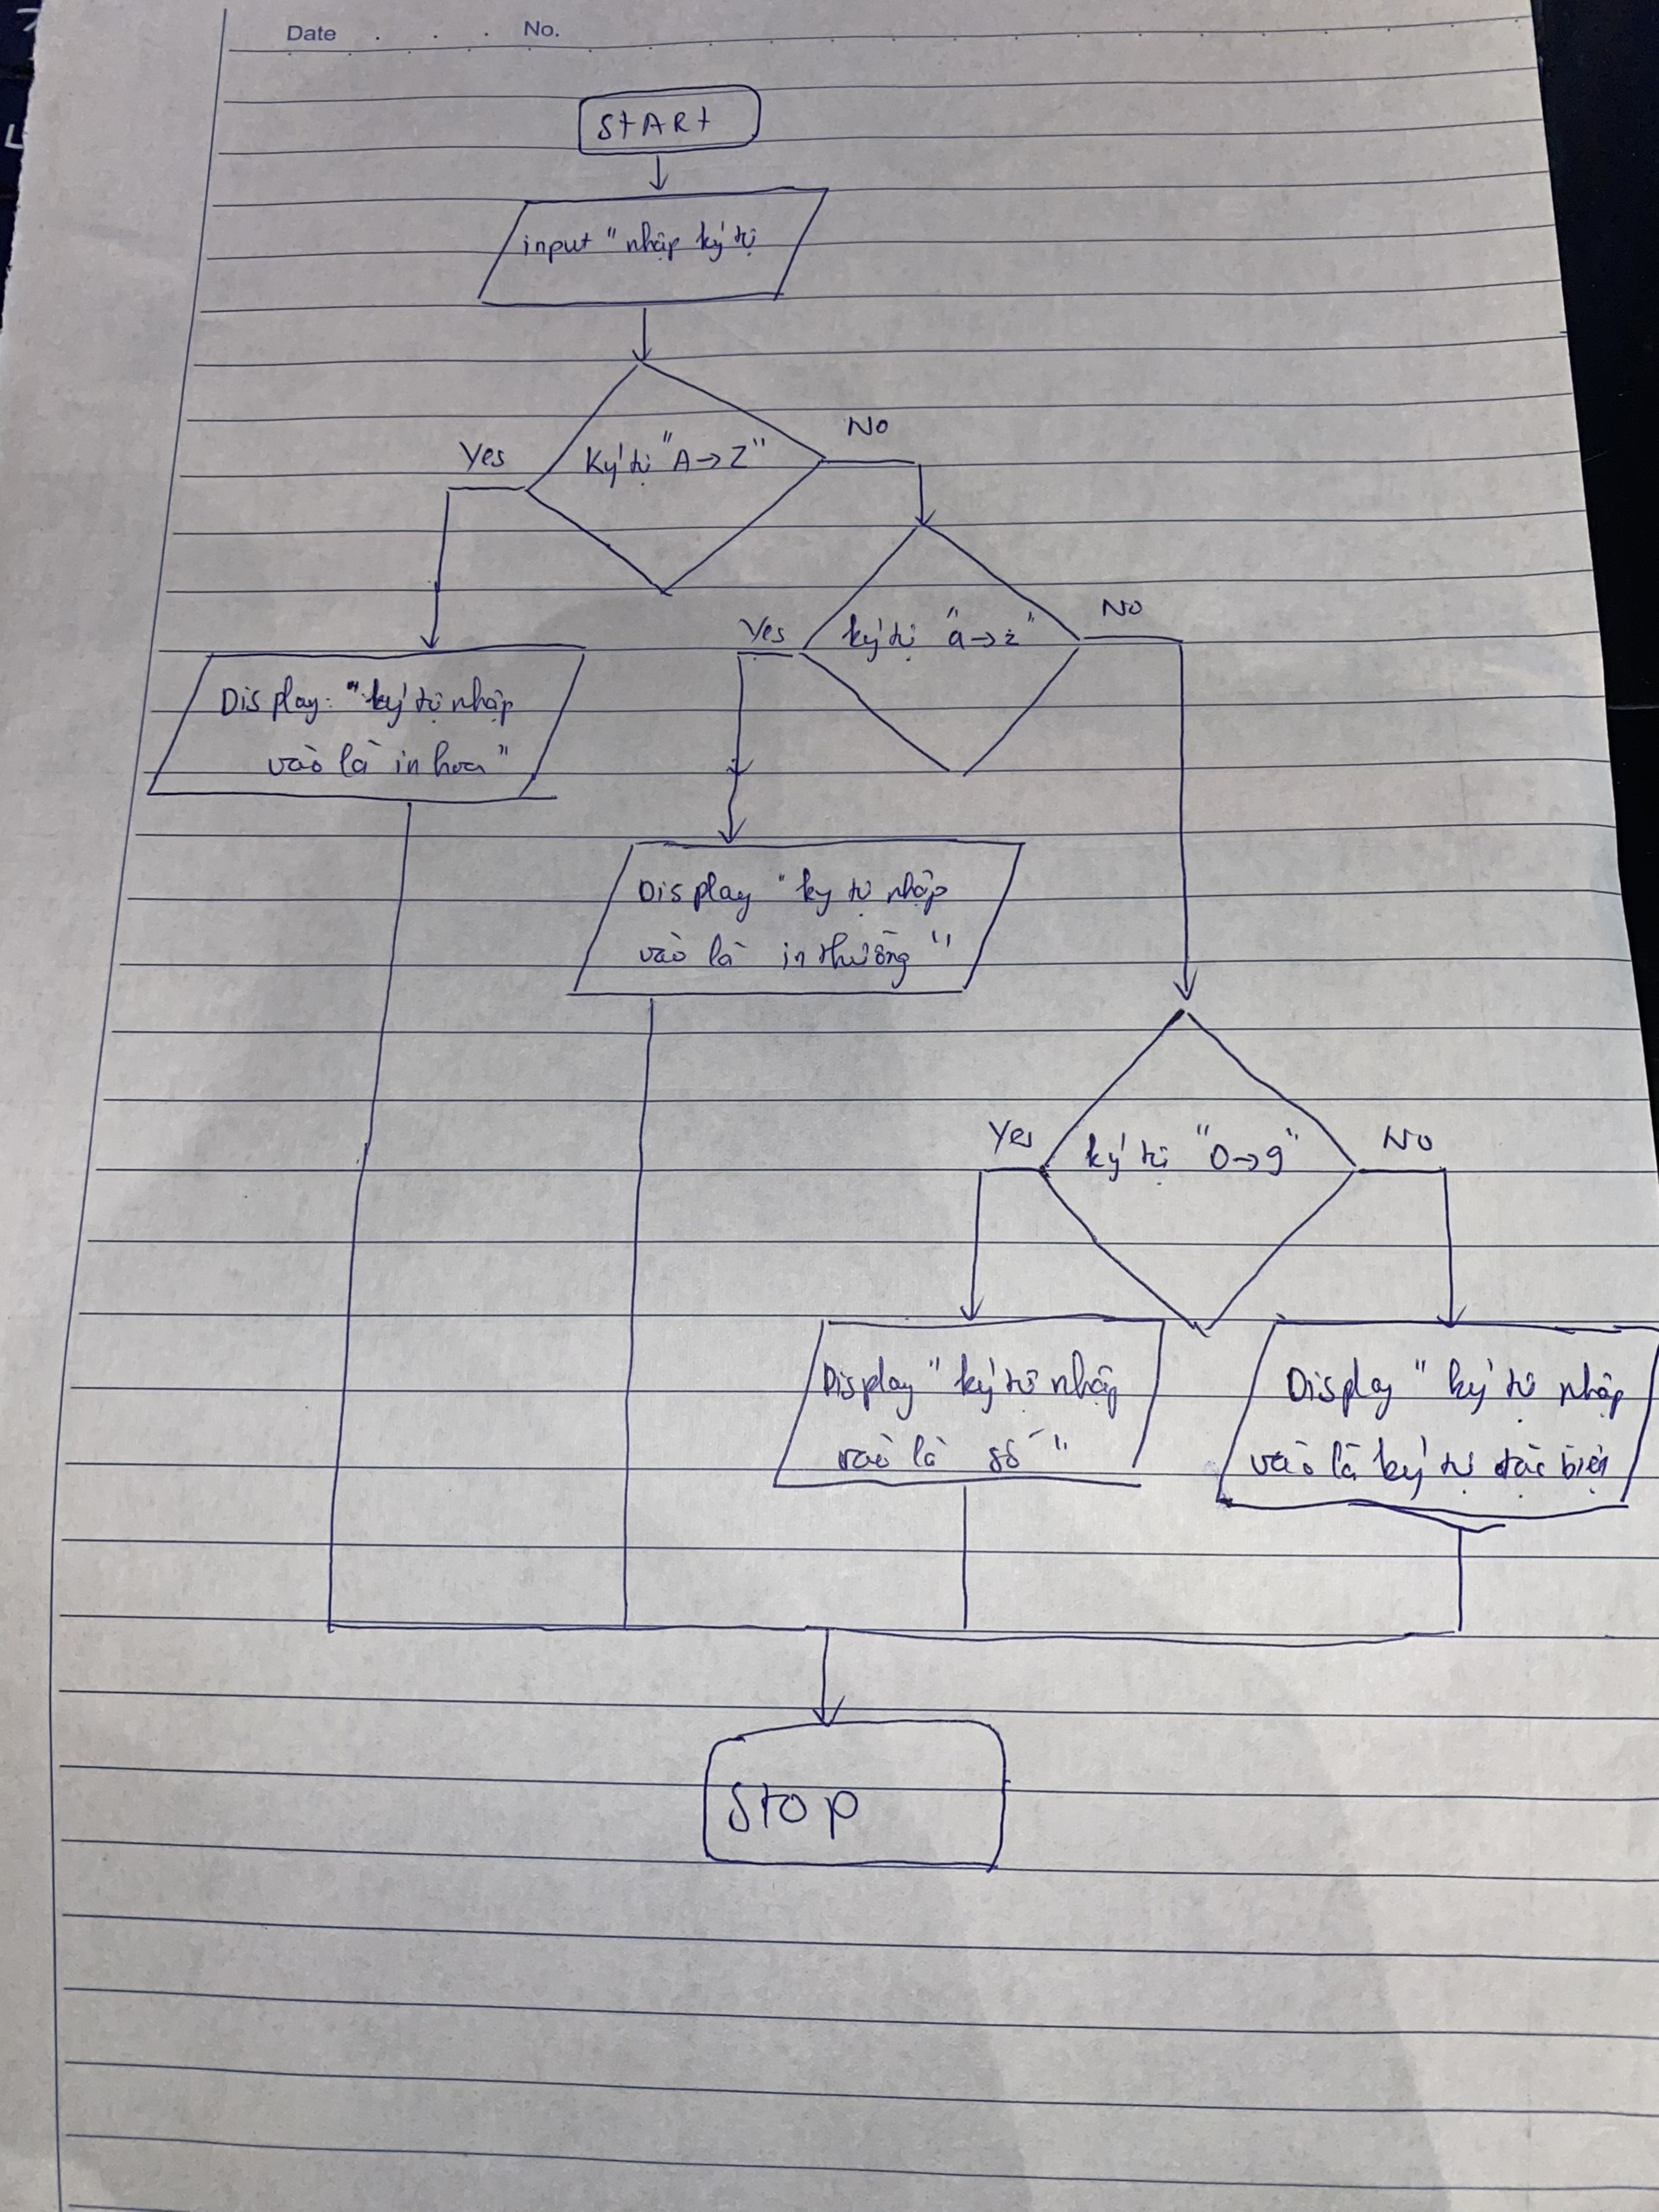 Date . . . No.
START
input " nhập ký tự
Ký tự "A→Z"
Yes
No
ký tự "a→z"
Yes
No
Display: "ký tự nhập
vào là in hoa"
Display "ký tự nhập
vào là in thường"
ký tự "0→9"
Yes
No
Display "ký tự nhập
vào là số"
Display "ký tự nhập
vào là ký tự đặc biệt
Stop